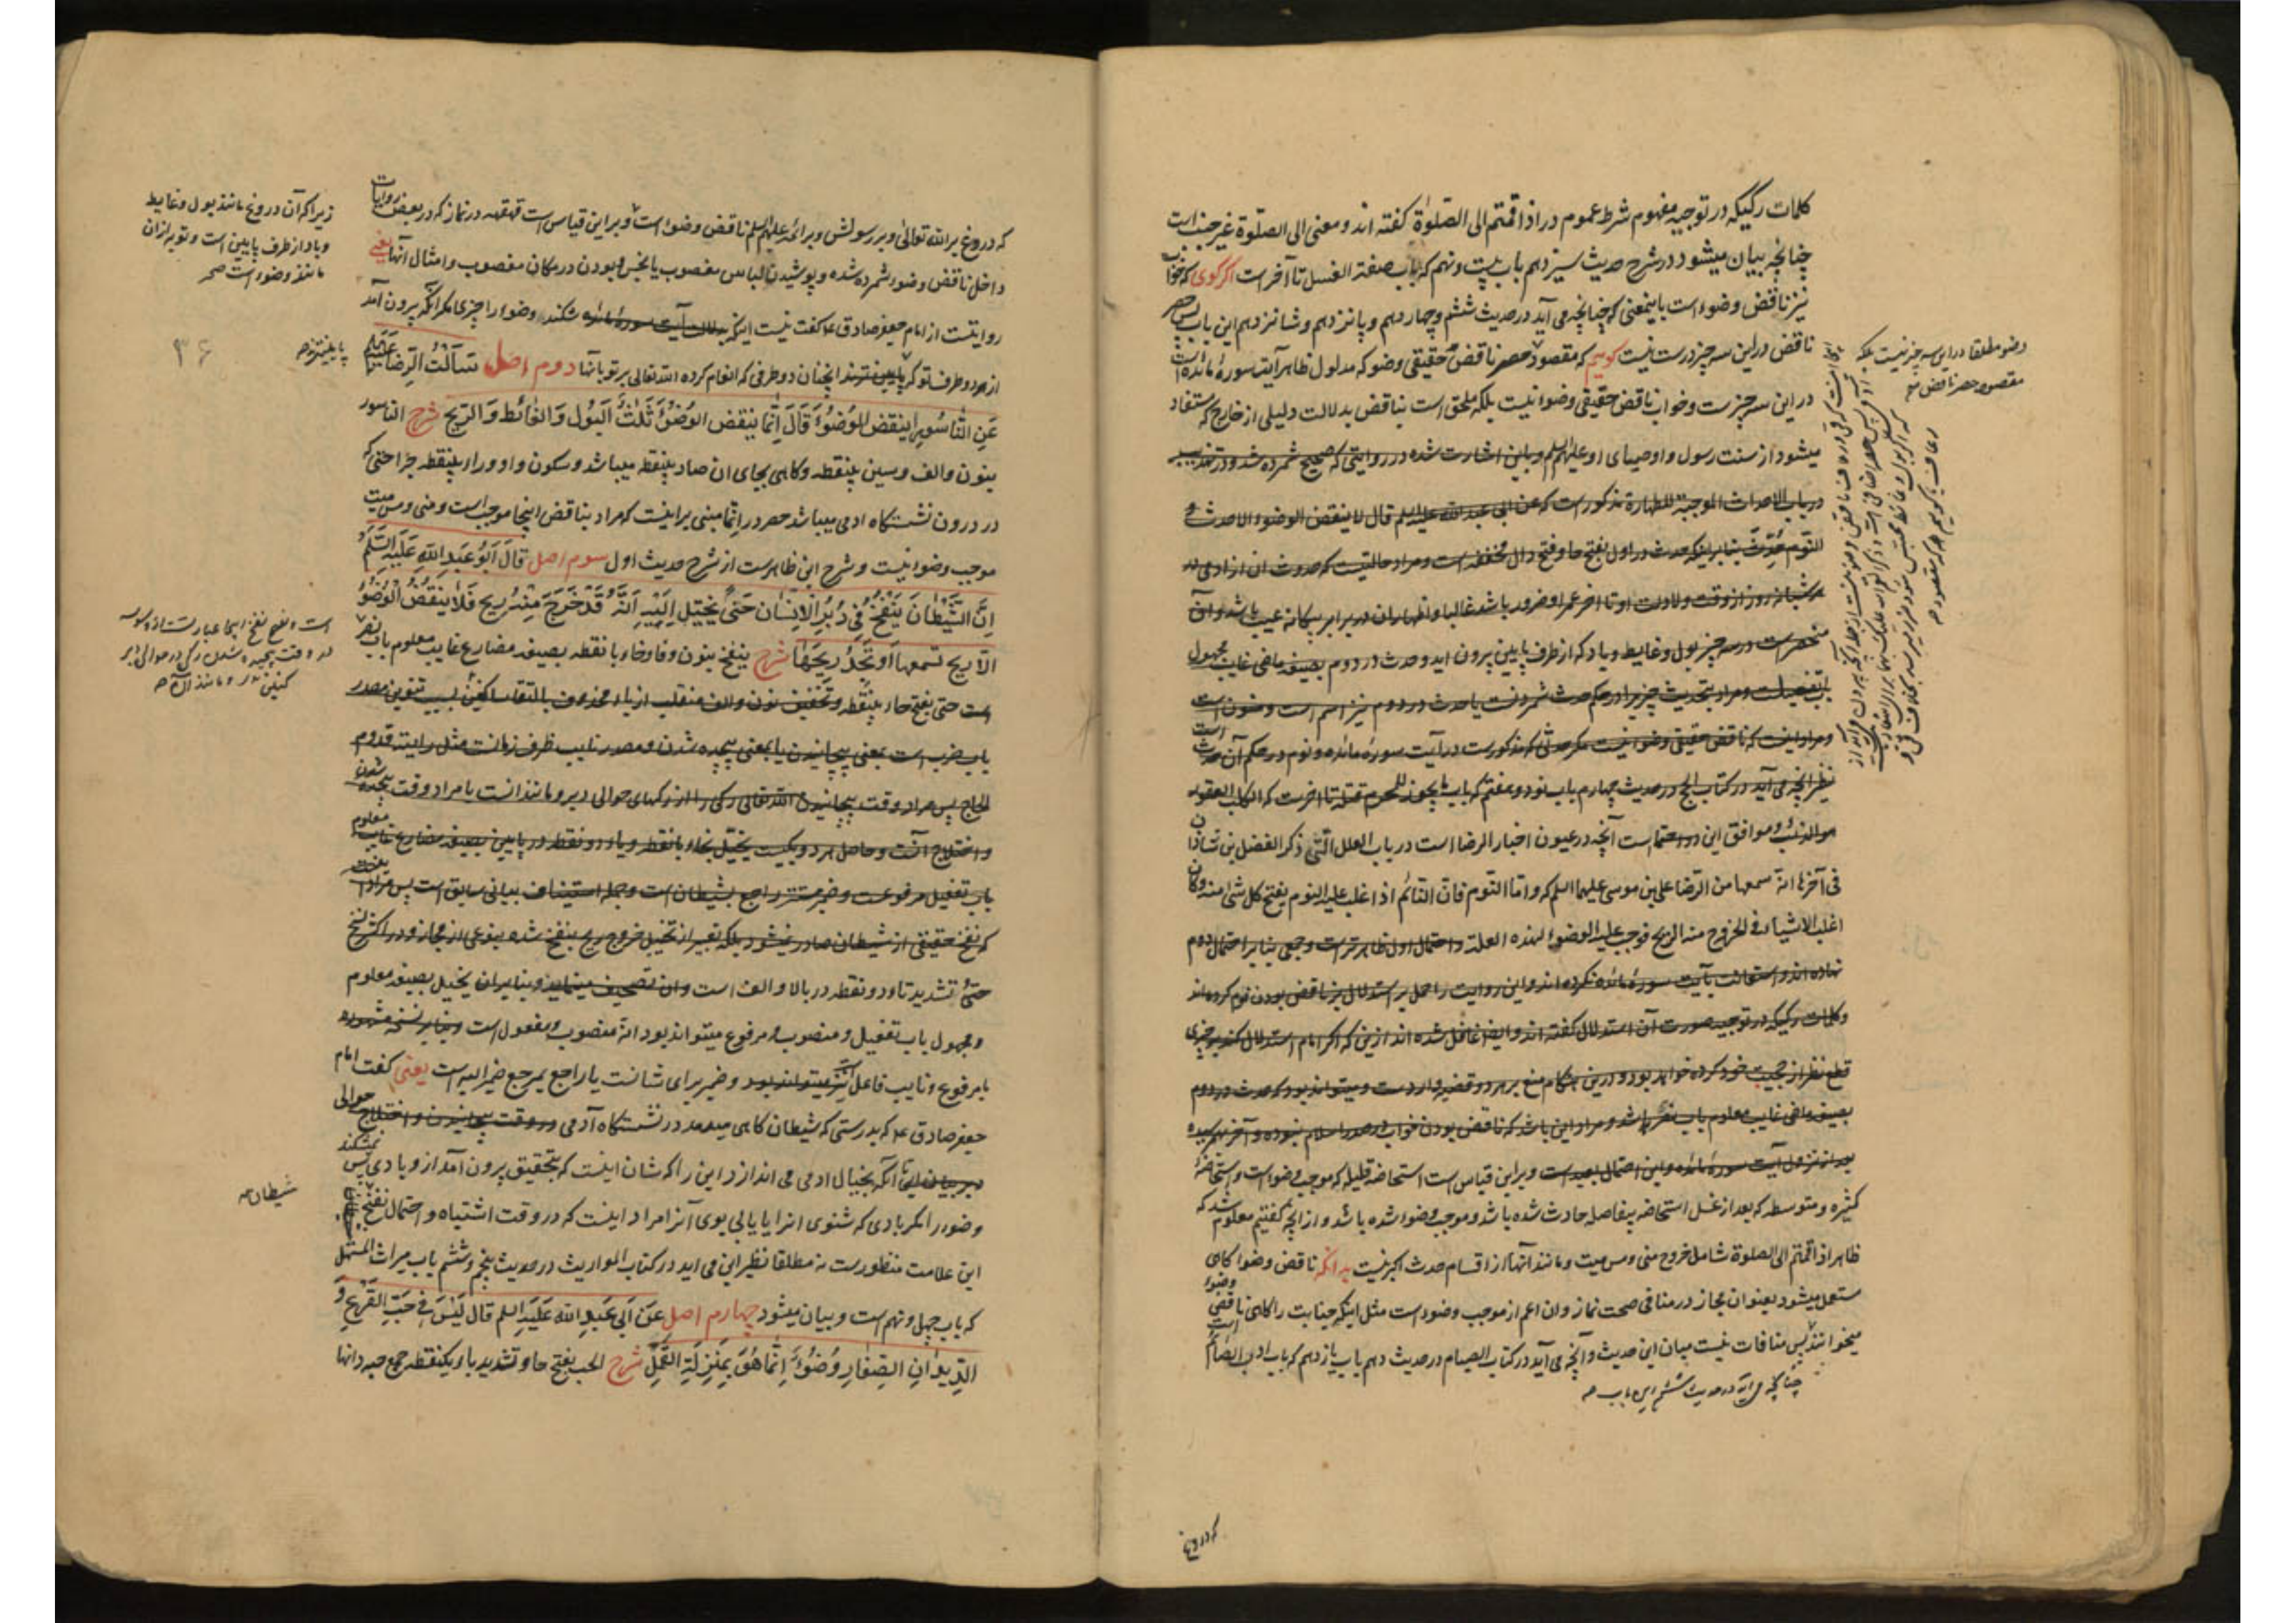 کلمات رکیکه در توجیه مفهوم شرط عموم در اذا قمتم الی الصلوٰة کفته اند و معنی الی الصلوٰة غیر جنب است
چنانچه بیان میشود در شرح حدیث سیزدهم باب بیست و نهم که باب صفة الغسل تا آخر است اکر کوی که خواب
نیز ناقض وضوء است باینمعنی که چنانچه می آید در حدیث ششم و چهاردهم و پانزدهم و شانزدهم این باب پس حصر
ناقض در این سه چیز درست نیست کوییم که مقصود حصر ناقض حقیقی وضو که مدلول ظاهر آیت سورهٔ مائده است
در این سه چیز ست و خواب ناقض حقیقی وضوء نیست بلکه ملحق است بناقض بدلالت دلیلی از خارج که مستفاد
میشود از سنت رسول و اوصیای او علیهم السلم و باین اشارت شده در روایتی که صحیح شمرده شد و در تهذیب
در باب الاحداث الموجبة للطهارة مذکور است که عن ابی عبد الله علیه السلم قال لا ینقض الوضوء الا حدث و
النوم حدث بنابر اینکه حدث در اول بفتح حا و فتح دال مخففه است و مراد حالتیست که حدوث ان از ادمی در
هر شبانه روز از وقت ولادت او تا اخر عمر او ضرور باشد غالبا و اظهار ان در برابر بیکانه عیب باشد و آن
منحصر است در سه چیز بول و غایط و باد که از طرف پایین بیرون اید و حدث در دوم بصیغه ماضی غایب مجهول
باب تفعیلست و مراد بتحدیث چیزیرا در حکم حدث شمردنست یا حدث در دوم نیز اسم است و منون است
و مراد اینست که ناقض حقیقی وضو نیست مکر حدثی که مذکور ست در آیت سورهٔ مائده و نوم در حکم آن حدث است
نظیر انچه می آید در کتاب الحج در حدیث چهارم باب نود و هفتم که باب ما یجوز للمحرم قتله تا اخرست که الکلب العقور
هو الذئب و موافق این دو احتمالست آنچه در عیون اخبار الرضا است در باب العلل التی ذکر الفضل بن شاذان
فی آخرها انه سمعها من الرضا علی بن موسی علیهما السلم که و اما النوم فان النائم اذا غلب علیه النوم یفتح کل شئ منه و کان
اغلب الاشیاء فی الخروج منه الریح فوجب علیه الوضوء لهذه العلة و احتمال اول ظاهرترست و جمعی بنابر احتمال دوم
نهاده اند و استعانت بآیت سورهٔ مائده نکرده اند و این روایت را حمل بر استدلال بر ناقض بودن نوم کرده اند
و کلمات رکیکه در توجیه صورت آن استدلال کفته اند و ایضا غافل شده اند ازین که اکر امام استدلال کند بر چیزی
قطع نظر از حجیت خود کرده خواهد بود و درین هنکام منع بر هر دو قضیه وارد ست و میتواند بود که حدث در دوم
بصیغه ماضی غایب معلوم باب نصر باشد و مراد این باشد که ناقض بودن خواب در صدر اسلام نبوده و آخر بهم رسیده
بعد از نزول آیت سورهٔ مائده و این احتمال بعید است و براین قیاس است استحاضه قلیله که موجب وضوء است و استحاضهٔ
کثیره و متوسطه که بعد از غسل استحاضه بفاصله حادث شده باشد و موجب وضوء شده باشد و از انچه کفتیم معلوم شد که
ظاهر اذا قمتم الی الصلوة شامل خروج منی و مس میت و مانند آنها از اقسام حدث اکبر نیست بدانکه ناقض وضوء کاهی
مستعمل میشود بعنوان مجاز در منافی صحت نماز و ان اعم از موجب وضوء است مثل اینکه جنابت را کاهی ناقض وضوء
میخوانند پس منافات نیست میان این حدیث و آنچه می آید در کتاب الصیام در حدیث دهم باب یازدهم که باب ادب الصائم است
چنانچه می آید در حدیث ششم این باب صح
وضو مطلقا در این سه چیز نیست بلکه
مقصود حصر ناقض صح
که دروغ
که دروغ بر الله تعالی و بر رسولش و بر ائمه علیهم السلم ناقض وضوء است و بر این قیاس است قهقهه در نماز که در بعض روایات
داخل ناقض وضوء شمرده شده و پوشیدن لباس مغصوب یا نجس و بودن در مکان مغصوب و امثال آنها یعنی
روایتست از امام جعفر صادق ع کفت نیست اینکه بدلالت آیت سورهٔ مائده شکند وضوء را چیزی مکر انکه بیرون آمد
از هر دو طرف تو که پایین ترند اینچنان دو طرفی که انعام کرده الله تعالی بر تو بآنها دوم اصل سَأَلْتُ الرِّضَا عَلَیْهِ السَّلَم
عَنِ النَّاسُورِ اَیَنْقُضُ الْوُضُوءَ قَالَ اِنَّمَا یَنْقُضُ الْوُضُوءَ ثَلٰثٌ اَلْبَوْلُ وَ الْغَائِطُ وَ الرِّیحُ شرح الناسور
بنون و الف و سین بینقطه و کاهی بجای ان صاد بینقطه میباشد و سکون واو و راء بینقطه جراحتی که
در درون نشستکاه ادمی میباشد حصر در انما مبنی بر اینست که مراد بناقض اینجا موجب است و منی و مس میت
موجب وضوء نیست و شرح این ظاهرست از شرح حدیث اول سوم اصل قَالَ اَبُو عَبْدِ اللهِ عَلَیْهِ السَّلَم
اِنَّ الشَّیْطَانَ یَنْفُخُ فِی دُبُرِ الْاِنْسَانِ حَتّٰی یُخَیَّلَ اِلَیْهِ اَنَّهُ قَدْ خَرَجَ مِنْهُ رِیحٌ فَلَا یَنْقُضُ الْوُضُوءَ
اِلَّا رِیحٌ تَسْمَعُهَا اَوْ تَجِدُ رِیحَهَا شرح ینفخ بنون و فا و خاء با نقطه بصیغه مضارع غایب معلوم باب نصر
است حتی بفتح حاء بینقطه و تخفیف نون و الف منقلب از یاء محذوف بالتقاء ساکنین بسبب تنوین مصدر
باب ضرب است بمعنی پیچانیدن یا بمعنی پیچیده شدن و مصدر نایب ظرف زمانست مثل رایته قدوم
الحاج پس مراد وقت پیچانیدن الله تعالی رکی را از رکهای حوالی دبر و مانند انست یا مراد وقت پیچیده شدن
و اختلاج آنست و حاصل هر دو یکیست یخیل بخاء با نقطه و یاء دو نقطه در پایین بصیغه مضارع غایب معلوم
باب تفعیل مرفوعست و ضمیر مستتر راجع بشیطان است و جمله استیناف بیانی سابق است پس مراد
که نفخ حقیقی از شیطان صادر نمیشود بلکه تعبیر از تخییل خروج ریح بنفخ شده بنوعی از مجاز و در اکثر نسخ
حتی بتشدید تاء دو نقطه در بالا و الف است و ان تصحیف مینماید و بنابر ان یخیل بصیغه معلوم
و مجهول باب تفعیل و منصوب و مرفوع میتواند بود انه منصوب و مفعول است و بنابر نسخه مشهوره
یا مرفوع و نایب فاعل نیز میتواند بود و ضمیر برای شانست یا راجع بمرجع ضمیر الیه است یعنی کفت امام
جعفر صادق ع که بدرستی که شیطان کاهی میدمد در نشستکاه آدمی در وقت پیچانیدن و اختلاج حوالی
آنکه بخیال ادمی می اندازد این را که شان اینست که بتحقیق بیرون آمد از و بادی پس نمیشکند
وضوء را مکر بادی که شنوی انرا یا یابی بوی آنرا مراد اینست که در وقت اشتباه و احتمال نفخ
این علامت منظورست نه مطلقا نظیر این می اید در کتاب المواریث در حدیث پنجم و ششم باب میراث المستهل
که باب چهل و نهم است و بیان میشود چهارم اصل عَنْ اَبِی عَبْدِ اللهِ عَلَیْهِ السلم قال لَیْسَ فِی حَبِّ الْقَرْعِ وَ
الدِّیدَانِ الصِّغَارِ وُضُوءٌ اِنَّمَا هُوَ بِمَنْزِلَةِ الْقَمْلِ شرح الحب بفتح حا و تشدید باء یکنقطه جمع حبه دانها
زیرا که آن دروغ مانند بول و غایط
و باد از طرف پایین است و توبه از ان
مانند وضوء است صح
پایینترند صح
۳۶
شیطان صح